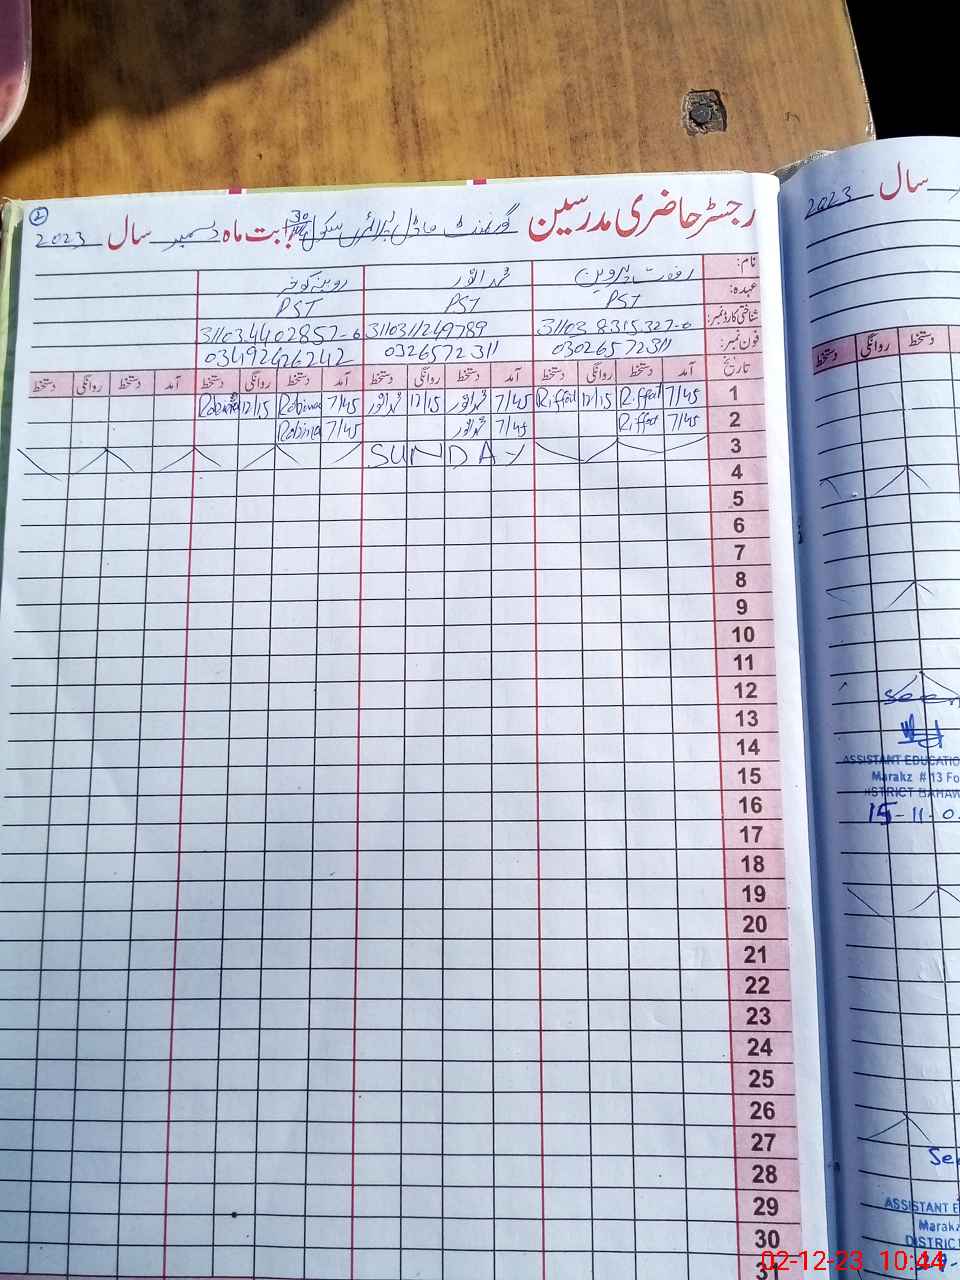 رجسٹر حاضری مدرسین گورنمنٹ ماڈل پرائمری سکول 30 بابت ماہ دسمبر سال 2023
نام: رفعت پروین محمد انور روبینہ کوثر
عہدہ: PST PST PST
شناختی کارڈ نمبر: 31103 8315327-0 3110311249789 311034402857-6
فون نمبر: 03026572311 0326572311 03492426242
تاریخ آمد دستخط روانگی دستخط آمد دستخط روانگی دستخط آمد دستخط روانگی دستخط آمد دستخط روانگی دستخط
1 7/45 Riffat 12/15 Riffat 7/45 محمد انور 12/15 محمد انور 7/45 Robina 12/15 Robina
2 7/45 Riffat 7/45 محمد انور 7/45 Robina
3 SUNDAY
4
5
6
7
8
9
10
11
12
13
14
15
16
17
18
19
20
21
22
23
24
25
26
27
28
29
30
31
سال 2023
دستخط روانگی دستخط
Seen
ASSISTANT EDUCATIO
Marakz # 13 Fo
DISTRICT BAHAW
15-11-0
See
ASSISTANT E
Marak
DISTRIC
02-12-23 10:44